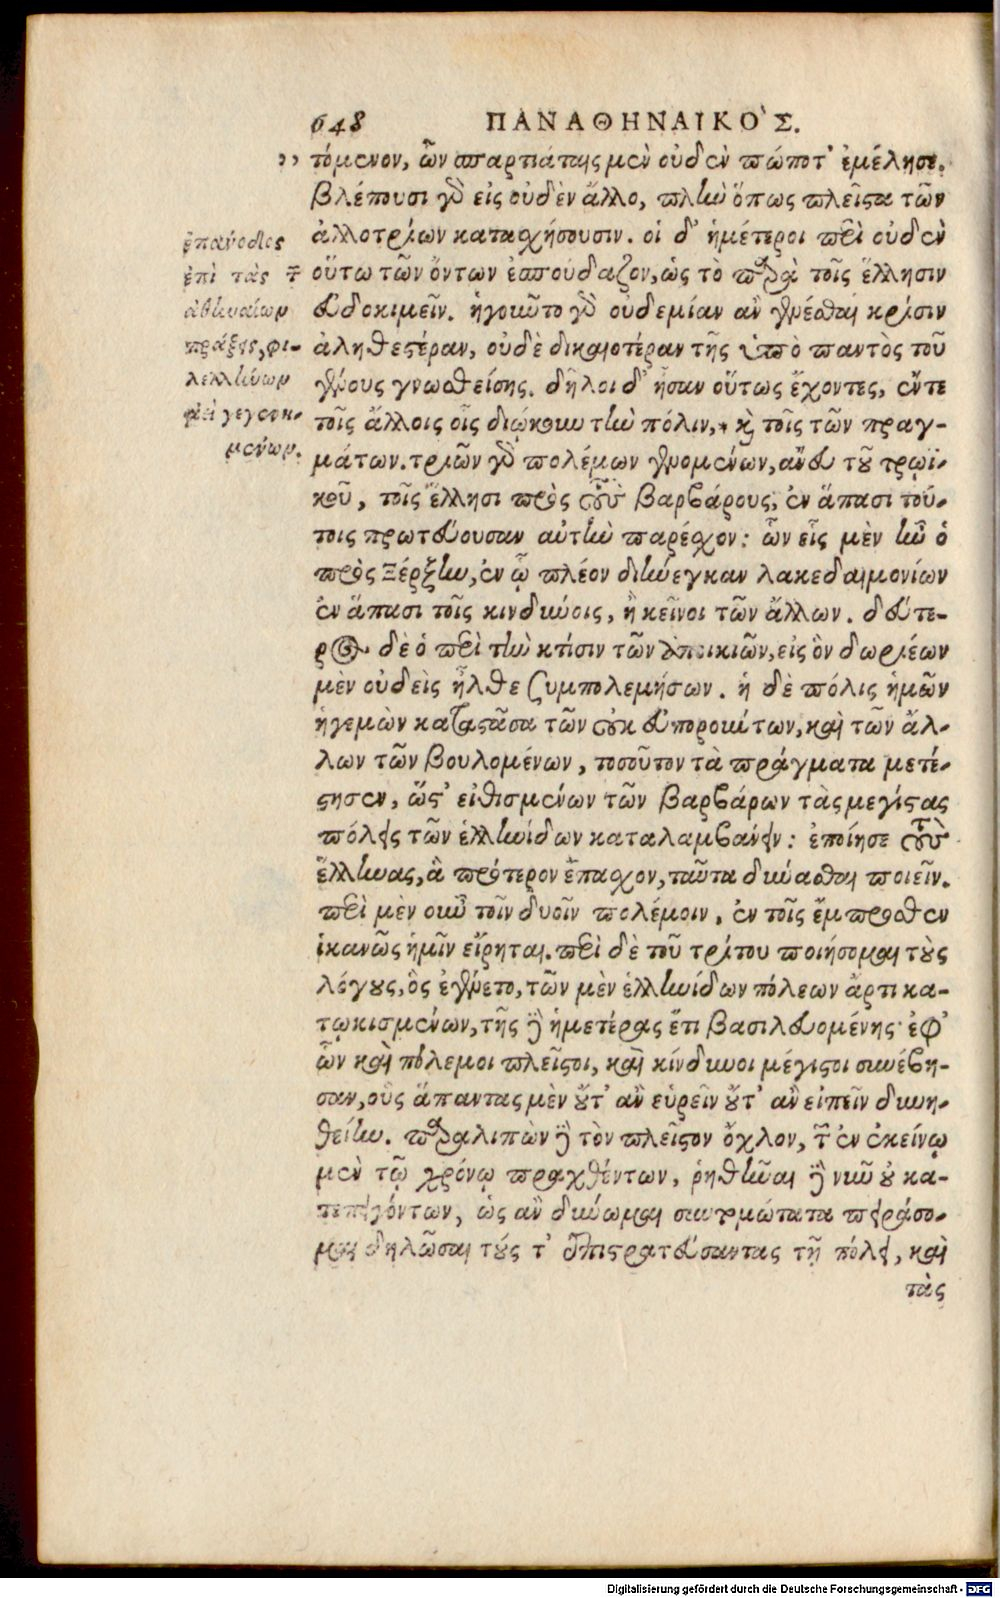 648 ΠΑΝΑΘΗΝΑΙΚΟ'Σ.
,, τόμενον, ὧν σπαρτιάταις μὲν οὐδὲν πώποτ' ἐμέλησε.
βλέπουσι γὰρ εἰς οὐδὲν ἄλλο, πλὴν ὅπως πλεῖστα τῶν
ἀλλοτρίων κατασχήσουσιν. οἱ δ' ἡμέτεροι περὶ οὐδὲν
οὕτω τῶν ὄντων ἐσπούδαζον, ὡς τὸ παρὰ τοῖς ἕλλησιν
εὐδοκιμεῖν. ἡγοῦντο γὰρ οὐδεμίαν ἂν γενέσθαι κρίσιν
ἀληθεστέραν, οὐδὲ δικαιοτέραν τῆς ὑπὸ παντὸς τοῦ
γένους γνωσθείσης. δῆλοι δ' ἦσαν οὕτως ἔχοντες, ἔν τε
τοῖς ἄλλοις οἷς διῴκουν τὴν πόλιν, καὶ τοῖς τῶν πραγ-
μάτων. τριῶν γὰρ πολέμων γενομένων, ἄνευ τοῦ τρωϊ-
κοῦ, τοῖς ἕλλησι πρὸς τοὺς βαρβάρους, ἐν ἅπασι τού-
τοις πρωτεύουσαν αὐτὴν παρέχον: ὧν εἷς μὲν ἦν ὁ
πρὸς Ξέρξην, ἐν ᾧ πλέον διήνεγκαν λακεδαιμονίων
ἐν ἅπασι τοῖς κινδύνοις, ἢ κεῖνοι τῶν ἄλλων. δεύτε-
ρος δὲ ὁ περὶ τὴν κτίσιν τῶν ἀποικιῶν, εἰς ὃν δωριέων
μὲν οὐδεὶς ἦλθε ξυμπολεμήσων. ἡ δὲ πόλις ἡμῶν
ἡγεμὼν καταστᾶσα τῶν οὐκ εὐπορούντων, καὶ τῶν ἄλ-
λων τῶν βουλομένων, τοσοῦτον τὰ πράγματα μετέ-
στησεν, ὥστ' εἰθισμένων τῶν βαρβάρων τὰς μεγίστας
πόλεις τῶν ἑλληνίδων καταλαμβάνειν: ἐποίησε τοὺς
ἕλληνας, ἃ πρότερον ἔπασχον, ταῦτα δύνασθαι ποιεῖν.
περὶ μὲν οὖν τοῖν δυοῖν πολέμοιν, ἐν τοῖς ἔμπροσθεν
ἱκανῶς ἡμῖν εἴρηται. περὶ δὲ τοῦ τρίτου ποιήσομαι τοὺς
λόγους, ὃς ἐγένετο, τῶν μὲν ἑλληνίδων πόλεων ἄρτι κα-
τῳκισμένων, τῆς δ' ἡμετέρας ἔτι βασιλευομένης· ἐφ'
ὧν καὶ πόλεμοι πλεῖστοι, καὶ κίνδυνοι μέγιστοι συνέβη-
σαν, οὓς ἅπαντας μὲν οὔτ' ἂν εὑρεῖν οὔτ' ἂν εἰπεῖν δυνη-
θείην. παραλιπὼν δὲ τὸν πλεῖστον ὄχλον, τῶν ἐν ἐκείνῳ
μὲν τῷ χρόνῳ πραχθέντων, ῥηθῆναι δὲ νῦν οὐ κα-
τεπειγόντων, ὡς ἂν δύνωμαι συντομώτατα πειράσο-
μαι δηλῶσαι τούς τ' ἐπιστρατεύσαντας τῇ πόλει, καὶ
τὰς
ἐπάνοδος
ἐπὶ τὰς τῶν
ἀθηναίων
πράξεις, φι-
λελλήνων
ἀεὶ γεγενη-
μένων.
Digitalisierung gefördert durch die Deutsche Forschungsgemeinschaft - DFG